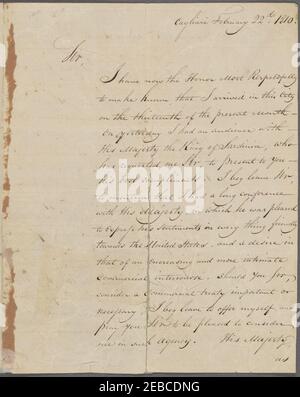 Cagliari February 22.d 1816.
Sir,
I have now the Honor Most Respectfully
to make known that I arrived in this City
on the thirteenth of the present Month—
On yesterday I had an audience with—
His Majesty the King of Sardinia, who
has requested me Sir, to present to you—
his best compliments. I beg leave Sir
to mention that I had a long conference
with His Majesty in which he was pleased
to express his sentiments in very friendly
towards the United States, and a desire in
that of an increasing and more intimate
commercial intercourse. Should you Sir,
consider a Commercial treaty important or
necessary I beg leave to offer myself and
pray you Sir to be pleased to consider
me in such agency. His Majesty
alamy
Image ID: 2EBCDNG
www.alamy.com